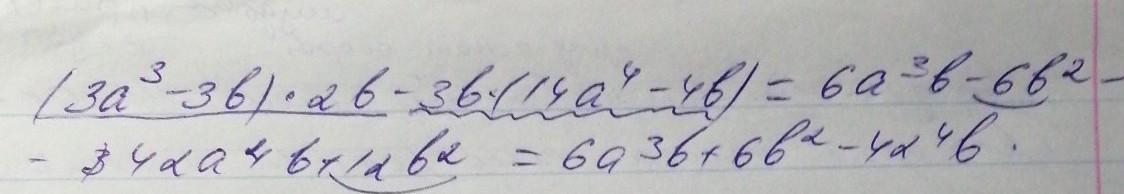 (3a³-3b)·2b-3b·(14a⁴-4b)=6a³b-6b²-
- 42a⁴b+12b² = 6a³b+6b²-42⁴b.